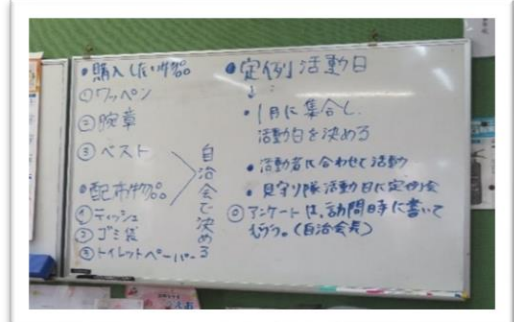 ●購入したい物品
①ワッペン
②腕章
③ベスト
●配布物品
①ティッシュ
②ゴミ袋
③トイレットペーパー
自治会で決める
●定例活動日
・1月に集合し、
活動日を決める
・活動者に合わせて活動
・見守り隊活動日に定例会
◎アンケートは、訪問時に書いて
もらう。(自治会長)